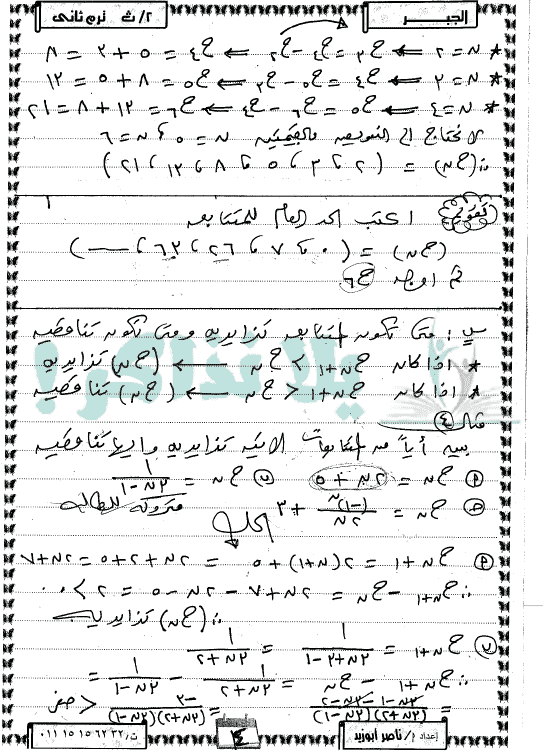 الجبر
٢/ث ترم ثانى
* ن = ٢ ⟸ ح٣ = ح٤ - ح٢ ⟸ ح٤ = ٥ + ٣ = ٨
* ن = ٣ ⟸ ح٤ = ح٥ - ح٣ ⟸ ح٥ = ٨ + ٥ = ١٣
* ن = ٤ ⟸ ح٥ = ح٦ - ح٤ ⟸ ح٦ = ١٣ + ٨ = ٢١
لا نحتاج الى التعويض بالقيمتين ن = ٥ ، ن = ٦
∴ (حن) = (٢ ، ٣ ، ٥ ، ٨ ، ١٣ ، ٢١)
اكتب الحد العام للمتتابعة
(حن) = (٠ ، ٧ ، ٢٦ ، ٦٣ ، ...)
ثم اوجد ح٦
س: متى تكون المتتابعة تزايدية ومتى تكون تناقصية
* اذا كان حن+١ > حن ← (حن) تزايدية
* اذا كان حن+١ < حن ← (حن) تناقصية
مثال ٤
بين أياً من المتتابعات الاتية تزايدية وايها تناقصية
(أ) حن = ٢ن + ٥ (ب) حن = ١/(٣ن - ١)
(ج) حن = (-١)^ن/٢ن + ٣ متروك للطالب
الحل
(أ) حن+١ = ٢(ن+١) + ٥ = ٢ن + ٢ + ٥ = ٢ن + ٧
∴ حن+١ - حن = ٢ن + ٧ - ٢ن - ٥ = ٢ > ٠
∴ (حن) تزايدية
(ب) حن+١ = ١/(٣ن + ٣ - ١) = ١/(٣ن + ٢)
∴ حن+١ - حن = ١/(٣ن + ٢) - ١/(٣ن - ١) =
= (٣ن - ١ - ٣ن - ٢)/((٣ن + ٢)(٣ن - ١)) = -٣/((٣ن + ٢)(٣ن - ١)) < صفر
إعداد أ/ ناصر أبوزيد
٤
ت/ ٠١١ ١٥ ١٥ ٦٢ ٣٢
يلا نذاكر!